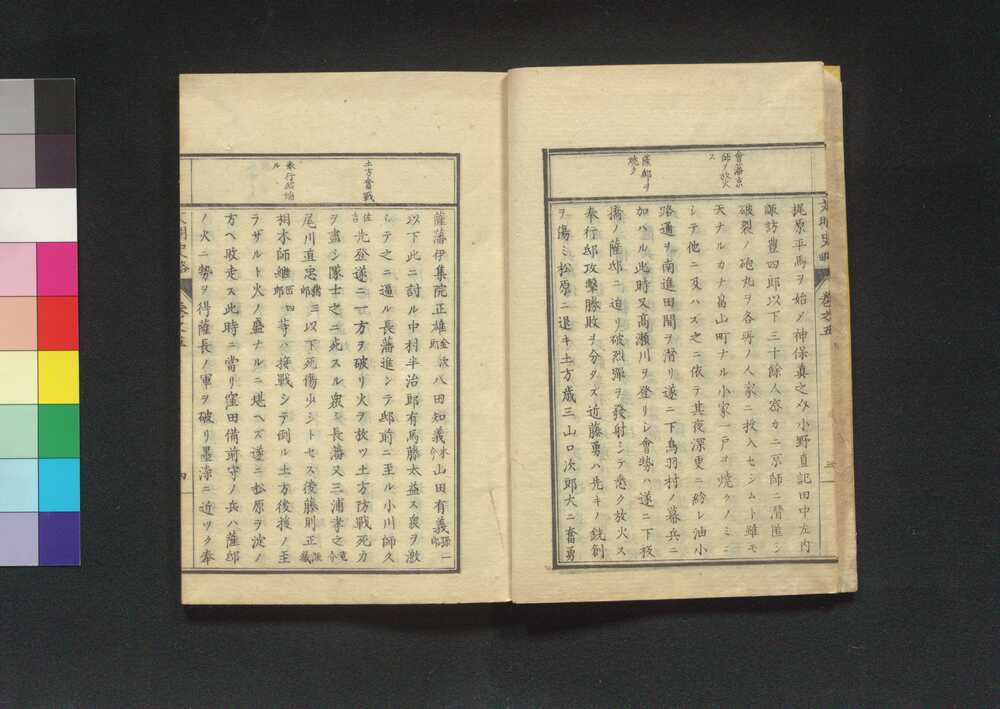 會藩京
師ヲ放火
ス
薩邸ヲ
燒ク
梶原平馬ヲ始メ神保眞之允小野直記田中左内
諏訪豊四郎以下三十餘人密カニ京師ニ潜匿シ
破裂ノ砲丸ヲ各所ノ人家ニ投入セシムト雖モ
天ナルカナ畠山町ナル小家一戸ヲ燒クノミニ
シテ他ニ及ハス之ニ依テ其夜深更ニ紛レ油小
路通ヲ南進田間ヲ潜リ遂ニ下鳥羽村ノ幕兵ニ
加ハル此時又高瀬川ヲ登リシ會勢ハ遂ニ下板
橋ノ薩邸ニ迫リ破烈彈ヲ發射シテ悉ク放火ス
奉行邸攻擊勝敗ヲ分タズ近藤勇ハ先キノ銃創
ヲ傷ミ松原ニ退キ土方歳三山口次郎大ニ奮勇
文明史略 卷之五 三
土方奮戰
奉行邸燒
ル
薩藩伊集院正雄金次郎八田知義山田有義孫一郎
以下此ニ討ル中村半治郎有馬藤太益ス衆ヲ激
シテ之ニ逼ル長藩進ンテ邸前ニ至ル小川師久
佐吉先登遂ニ一方ヲ破リ火ヲ放ツ土方防戰死力
ヲ盡シ隊士之ニ死スル衆シ長藩又三浦孝之
尾川直忠以下死傷少シトセス後藤則正
相木師維四郎等ハ接戰シテ倒ル土方後援ノ至
ラザルト火ノ盛ナルニ堪ヘズ遂ニ松原ヲ淀ノ
方ヘ敗走ス此時ニ當リ窪田備前守ノ兵ハ薩邸
ノ火ニ勢ヲ得薩長ノ軍ヲ破リ墨染ニ近ツク奉
文明史略 卷之五 四